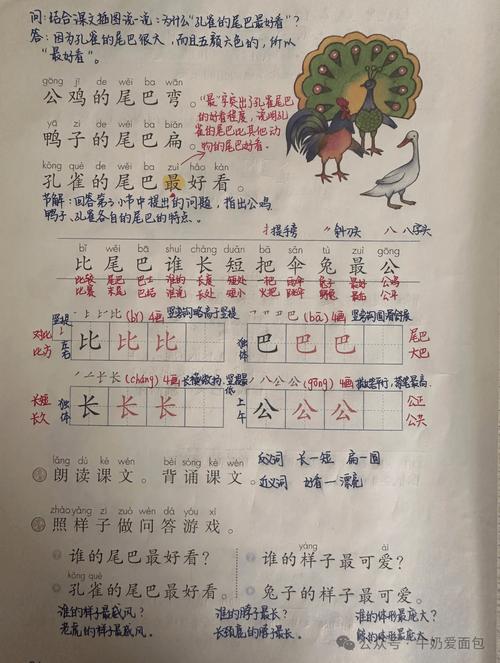 问：结合课文插图说一说：为什么“孔雀的尾巴最好看”？
答：因为孔雀的尾巴很大，而且五颜六色的，所以
“最好看”。
gōng jī de wěi ba wān
公鸡的尾巴弯。
yā zi de wěi ba biǎn
鸭子的尾巴扁。
kǒng què de wěi ba zuì hǎo kàn
孔雀的尾巴最好看。
“最”字突出了孔雀尾巴
的好看程度，说明孔
雀的尾巴比其他动
物的尾巴好看。
节解：回答第3小节中提出的问题，指出公鸡
鸭子、孔雀各自的尾巴的特点。
扌提手旁 八字头
bǐ wěi bā shuí cháng duǎn bǎ sǎn tù zuì gōng
比尾巴谁长短把伞兔最公
比较 尾巴 巴士 谁的 长度 短处 一把 雨伞 兔子 最好 公鸡
比赛 末尾 谁说 长处 短小 火把 最后 公平
(bǐ) 4画
对比
比方
左右
比 比 比
(bā) 4画
独体
巴 巴 巴
尾巴
大巴
(cháng) 4画
长短
长久
独体
长 长 长
(gōng) 4画
上下
公 公 公
公正
公共
lǎng dú kè wén bèi sòng kè wén
朗读课文。背诵课文。
反义词 长—短 扁—圆
近义词 好看—漂亮
zhào yàng zi zuò wèn dá yóu xì
照样子做问答游戏。
谁的尾巴最好看？
kǒng què
孔雀的尾巴最好看。
yàng ài
谁的样子最可爱？
兔子的样子最可爱。
谁的样子最威风？
老虎的样子最威风。
谁的脖子最长？
长颈鹿的脖子最长。
谁的体形最庞大？
的体形最庞大。
公众号·牛奶爱面包